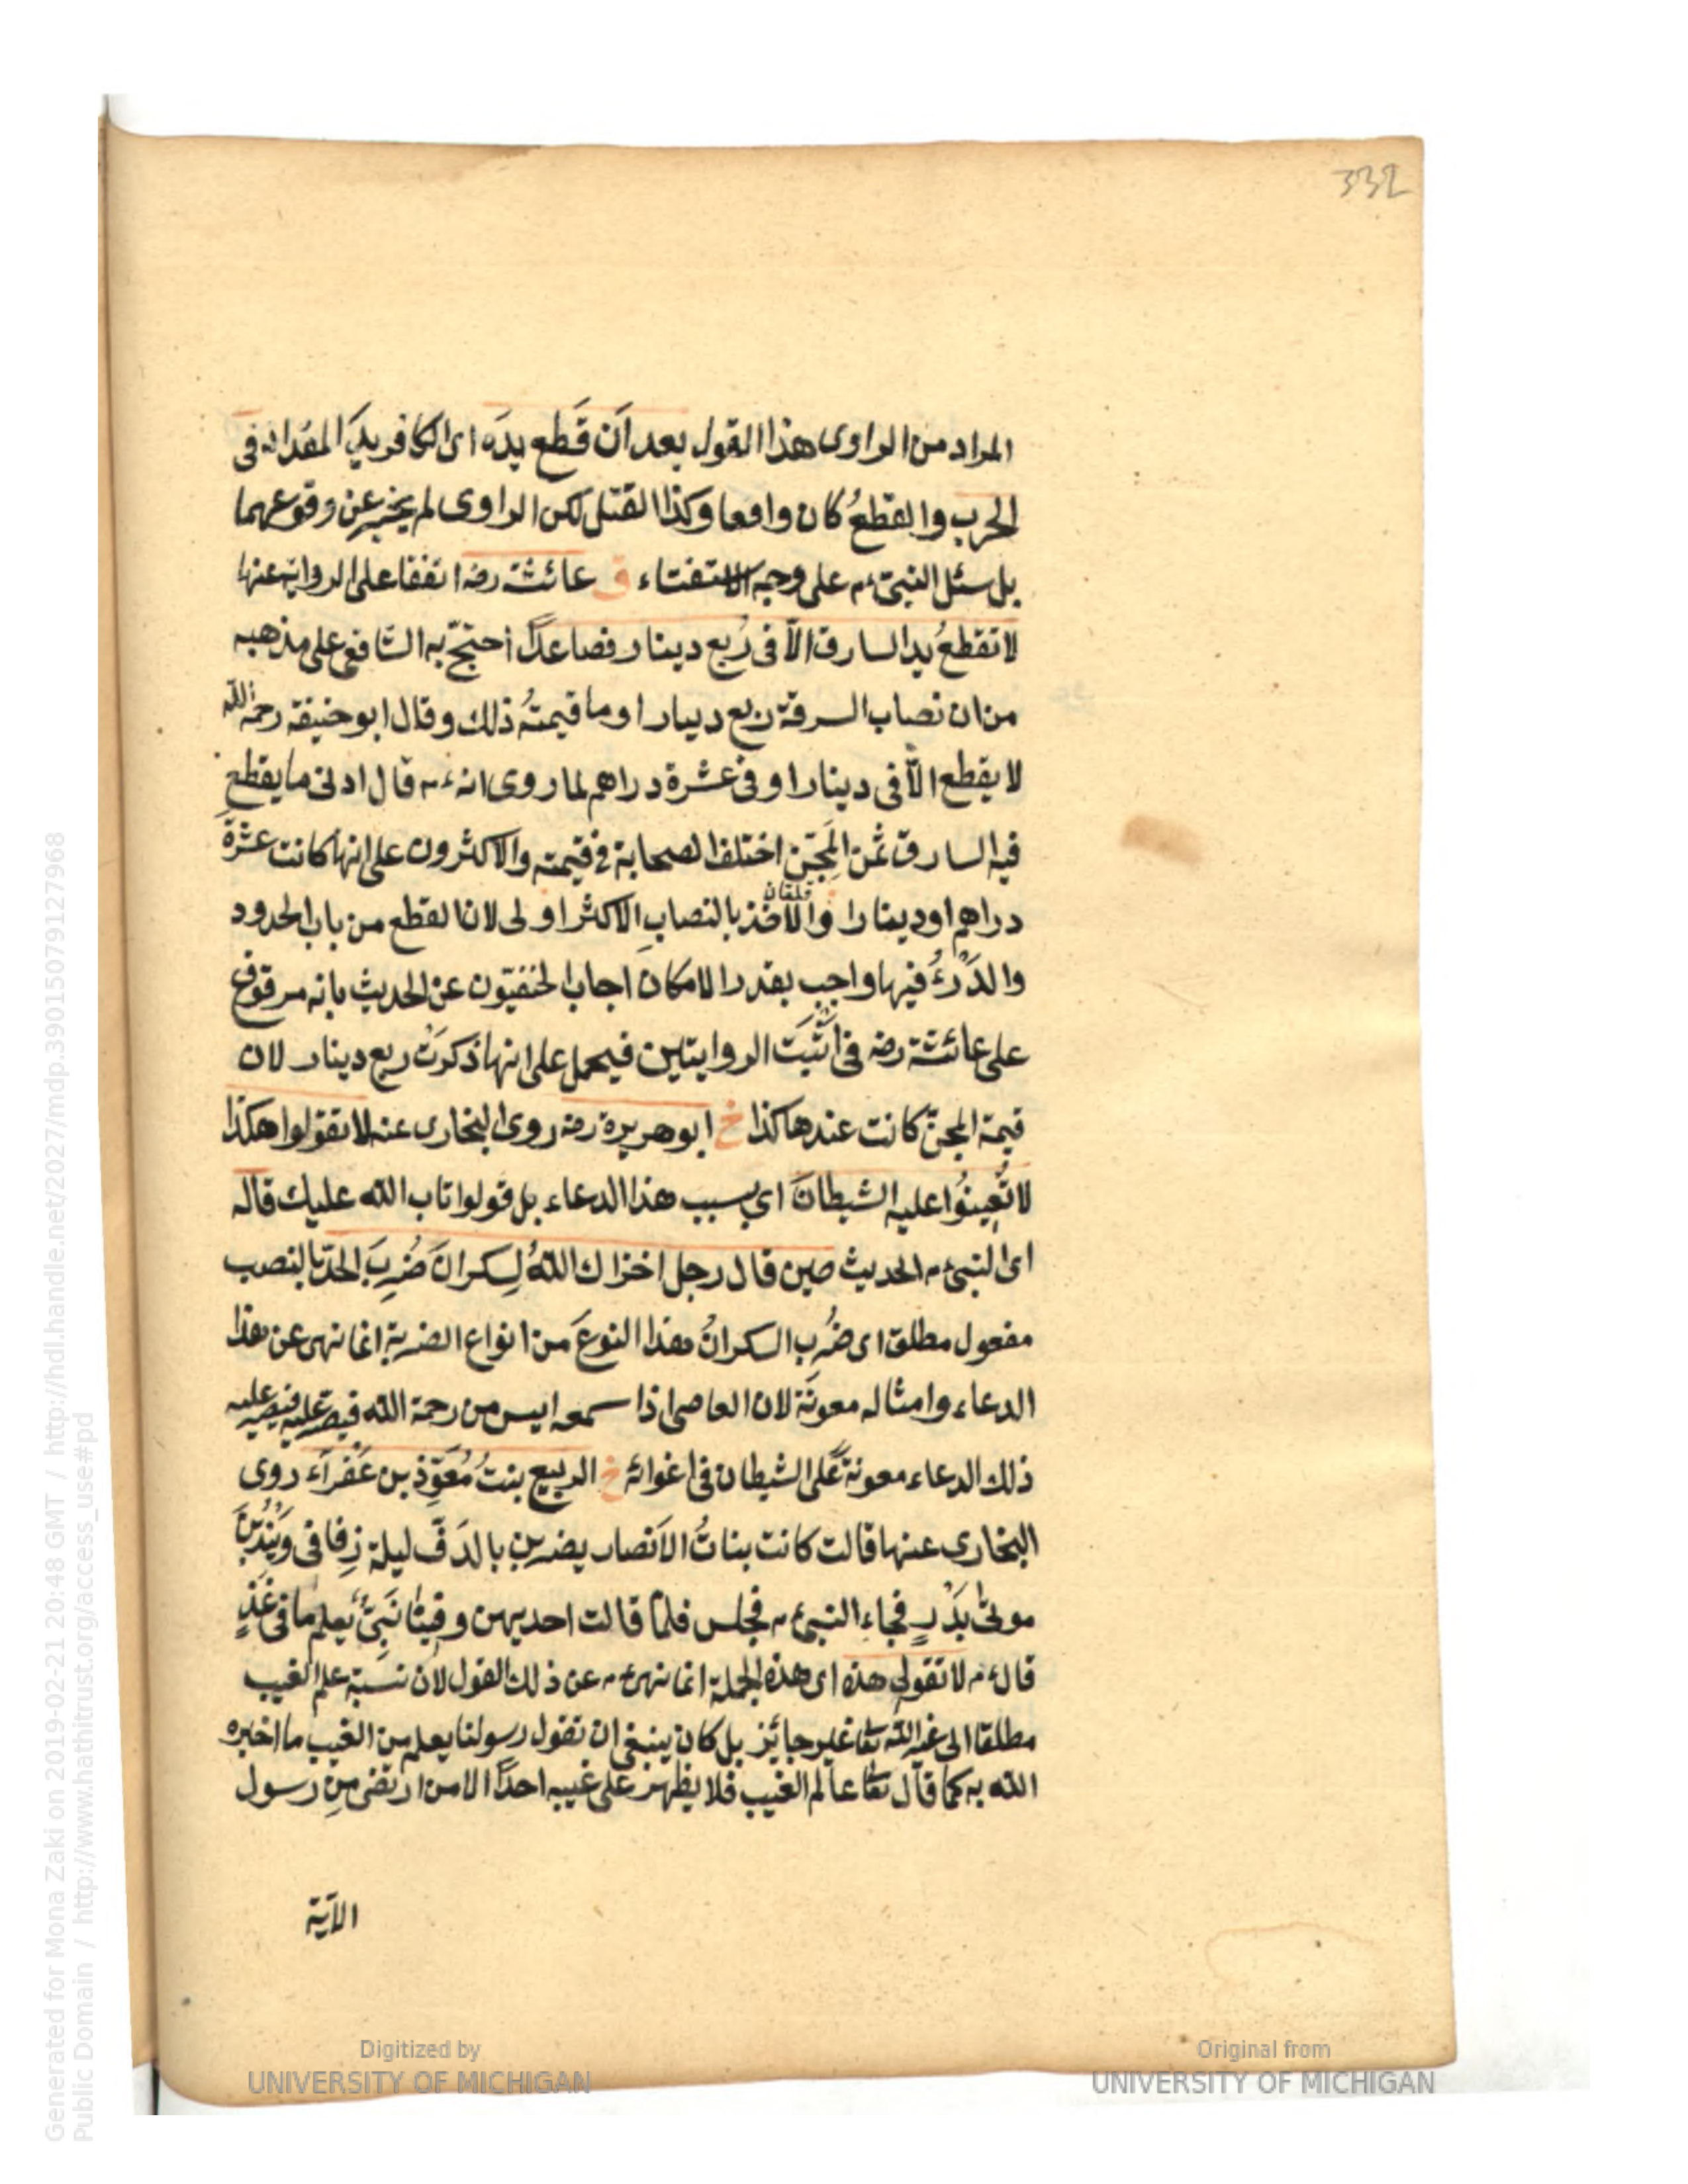 332
المراد من الراوى هذا القول بعد اَن قَطع يدَه اى الكافر يدَ المقداد فى
الحرب والقطعُ كان واقعا وكذا القتل لكن الراوى لم يخبر عن وقوعهما
بل سئل النبىّ ءم على وجه الاستفتاء ق عائشة رضه اتفقا على الرواية عنها
لا تقطعُ يد السارق الاّ فى رُبع دينار فصاعدًا احتجّ به الشافعى على مذهبه
من ان نصاب السرقة ربع دينار او ما قيمتُه ذلك وقال ابو حنيفة رحمه الله
لا يقطع الاّ فى دينار او فى عشرة دراهم لما روى انه ءم قال ادنى ما يقطع
فيه السارق ثمن المِجَنّ اختلف الصحابة فى قيمته والاكثرون على انها كانت عشرة
دراهم او دينارا والاخذ بالنصابِ الاكثر اولى لان القطع من باب الحدود
والدَرْءُ فيها واجب بقدر الامكان اجاب الحنفيّون عن الحديث بانه مرقوع
على عائشة رضه فى اَثْبَتَ الروايتين فيحمل على انها ذكرَتْ ربع دينار لان
قيمة المجنّ كانت عندها كذا خ ابو هريرة رضه روى البخارى عنه لا تقولوا هكذا
لا تُعِينُوا عليه الشيطانَ اى بسبب هذا الدعاء بل قولوا تاب الله عليك قاله
اى النبى ءم الحديث حين قال رجل اخزاك اللهُ لِسكرانَ ضُرِبَ الحدّ بالنصب
مفعول مطلق اى ضُرِب السكرانُ هذا النوعَ من انواع الضربة انما نهى عن هذا
الدعاء وامثاله معونَة لان العاصى اذا سمعه ايس من رحمة الله فيصر عليه فيصير عليه
ذلك الدعاء معونةً على الشيطان فى اغوائه خ الربيع بنتُ مُعَوِّذ بن عَفْرَآء روى
البخارى عنها قالت كانت بناتُ الاَنصار يضربن بالدَفّ ليلة زِفافى ويَنْدُبْنَ
موتىٰ بَدْرٍ فجاء النبى ءم فجلس فلمّا قالت احديهن وفينا نَبِىٌّ يعلم ما فى غَدٍ
قال ءم لا تقولى هذه اى هذه الجملة انما نهى ءم عن ذلك القول لاَن نسبة علم الغيب
مطلقا الى غير الله تعا غير جائز بل كان ينبغى ان تقول رسولنا يعلم من الغيب ما اخبره
الله به كما قال تعا عالم الغيب فلا يظهر على غيبه احدًا الا من ارتضى مِن رسول
الآية
Digitized by
UNIVERSITY OF MICHIGAN
Original from
UNIVERSITY OF MICHIGAN
Generated for Mona Zaki on 2019-02-21 20:48 GMT / http://hdl.handle.net/2027/mdp.39015079127968
Public Domain / http://www.hathitrust.org/access_use#pd